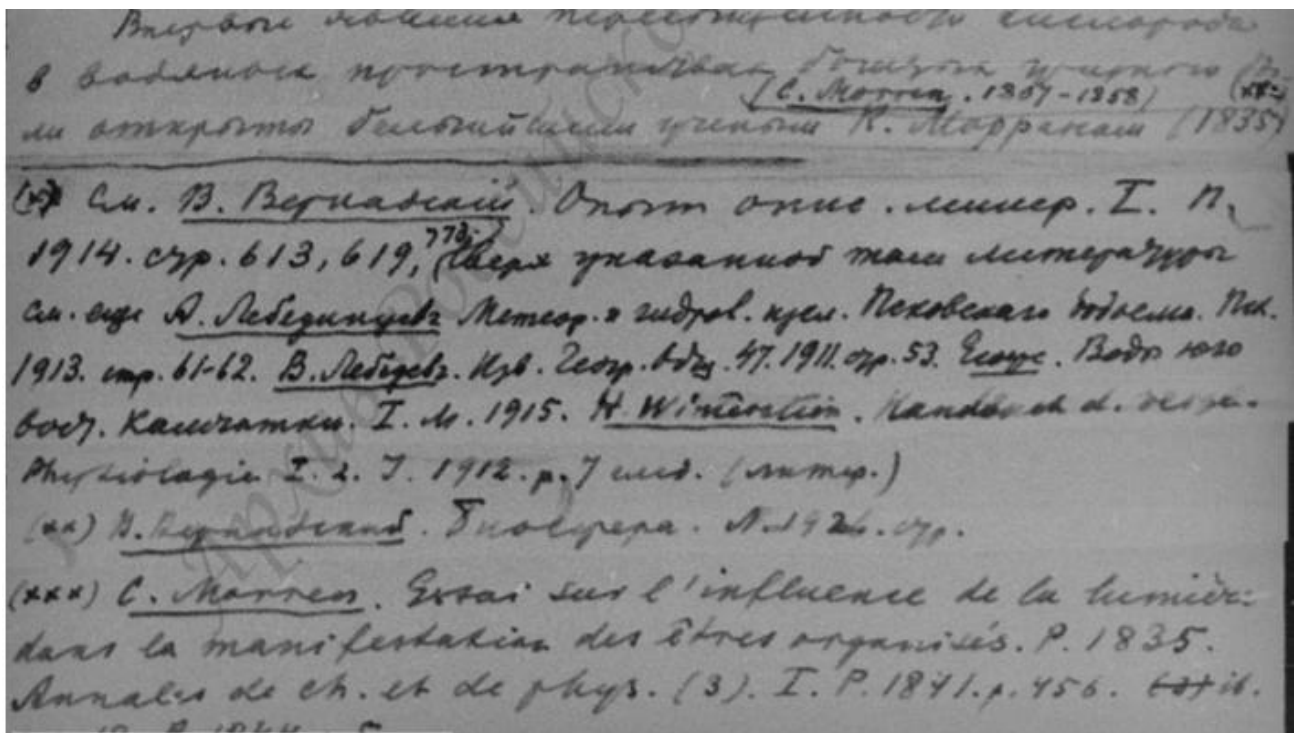 Впервые явления переменности кислорода
в водяных пространствах
(C. Morren. 1807-1858) (xxx)
ли открыты бельгийским ученым К. Морраном (1835)
(x) См. В. Вернадский. Опыт опис. минер. I. П.
1914. стр. 613, 619, 773. Сверх указанной там литературы
см. еще А. Лебединцевъ Метеор. и гидрол. изсл. Псковскаго водоема. Пск.
1913. стр. 61-62. В. Лебедевъ. Изв. Геогр. общ. 47. 1911. стр. 53. Его же. Воды юго
вост. Камчатки. I. М. 1915. H. Winterstein. Handbuch d. vergl.
Physiologie I. 2. J. 1912. p. 7 след. (литер.)
(xx) В. Вернадский. Биосфера. Л. 1926. стр.
(xxx) C. Morren. Essai sur l'influence de la lumière
dans la manifestation des êtres organisés. P. 1835.
Annales de ch. et de phys. (3). I. P. 1841. p. 456. ib.